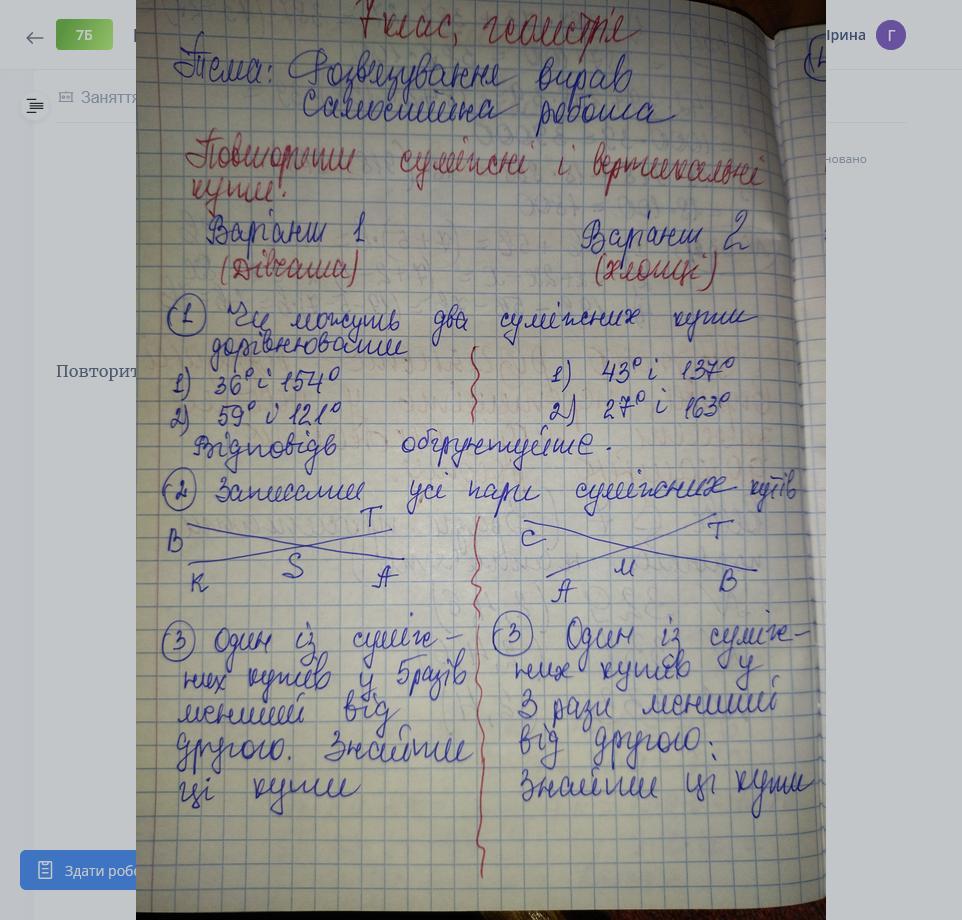 7Б
Ірина
Г
Заняття
новано
Повторит
Здати роб
7 клас, геометрія
Тема: Розв'язування вправ
Самостійна робота
Повторити суміжні і вертикальні
кути!
Варіант 1 Варіант 2
(дівчата) (хлопці)
1 Чи можуть два суміжних кути
дорівнювати
1) 36° і 154° 1) 43° і 137°
2) 59° і 121° 2) 27° і 163°
Відповідь обґрунтуйте.
2 Запишіть усі пари суміжних кутів
B T K S A
C T A M B
3 Один із суміж-
них кутів у 5 разів
менший від
другого. Знайти
ці кути
3 Один із суміж-
них кутів у
3 рази менший
від другого.
Знайти ці кути